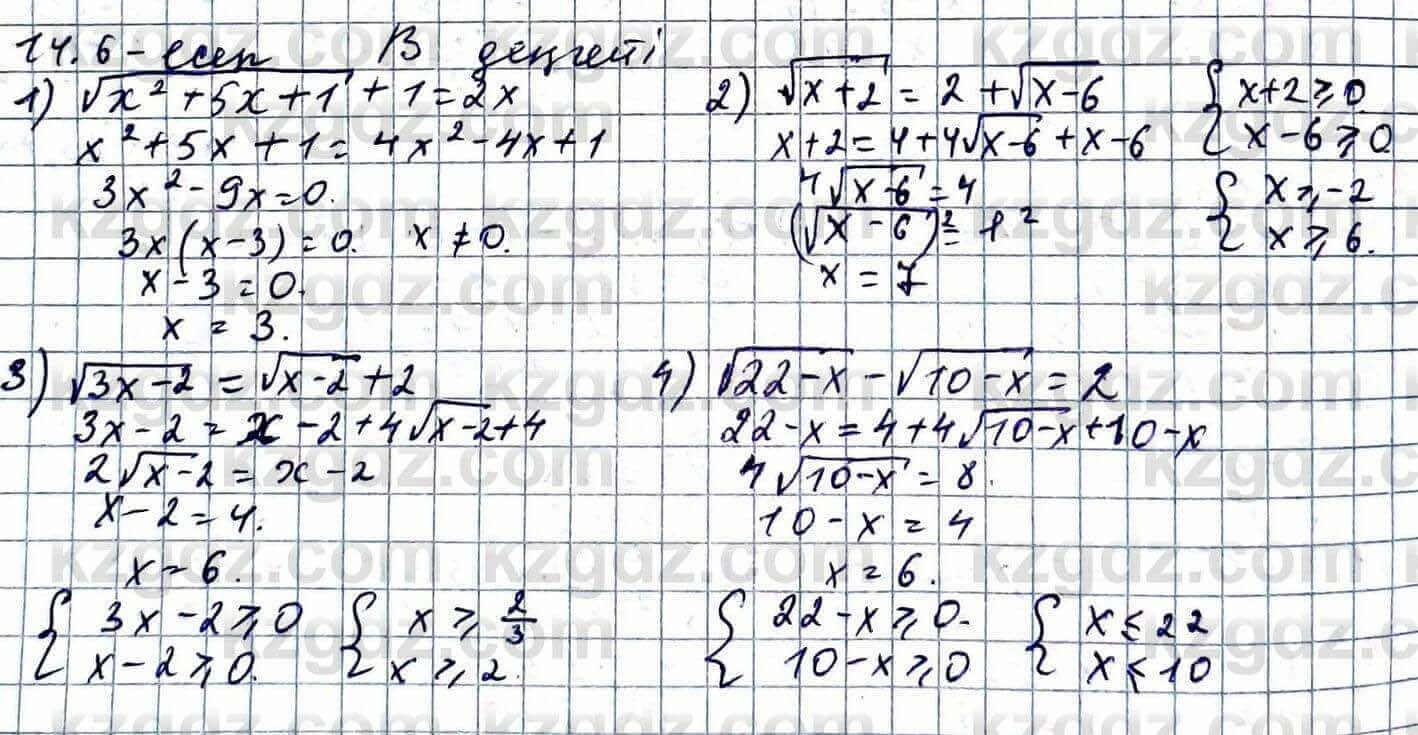 14.6-есеп В деңгейі
1) √(x² + 5x + 1) + 1 = 2x
x² + 5x + 1 = 4x² - 4x + 1
3x² - 9x = 0.
3x(x - 3) = 0. x ≠ 0.
x - 3 = 0.
x = 3.
2) √(x + 2) = 2 + √(x - 6)
x + 2 = 4 + 4√(x - 6) + x - 6
4√(x - 6) = 4
(√(x - 6))² = 1²
x = 7
{ x + 2 ⩾ 0
x - 6 ⩾ 0
{ x ⩾ -2
x ⩾ 6.
3) √(3x - 2) = √(x - 2) + 2
3x - 2 = x - 2 + 4√(x - 2) + 4
2√(x - 2) = x - 2
x - 2 = 4.
x = 6.
{ 3x - 2 ⩾ 0
x - 2 ⩾ 0.
{ x ⩾ 2/3
x ⩾ 2.
4) √(22 - x) - √(10 - x) = 2
22 - x = 4 + 4√(10 - x) + 10 - x
4√(10 - x) = 8.
10 - x = 4
x = 6.
{ 22 - x ⩾ 0.
10 - x ⩾ 0
{ x ⩽ 22
x ⩽ 10
kzgdz.com